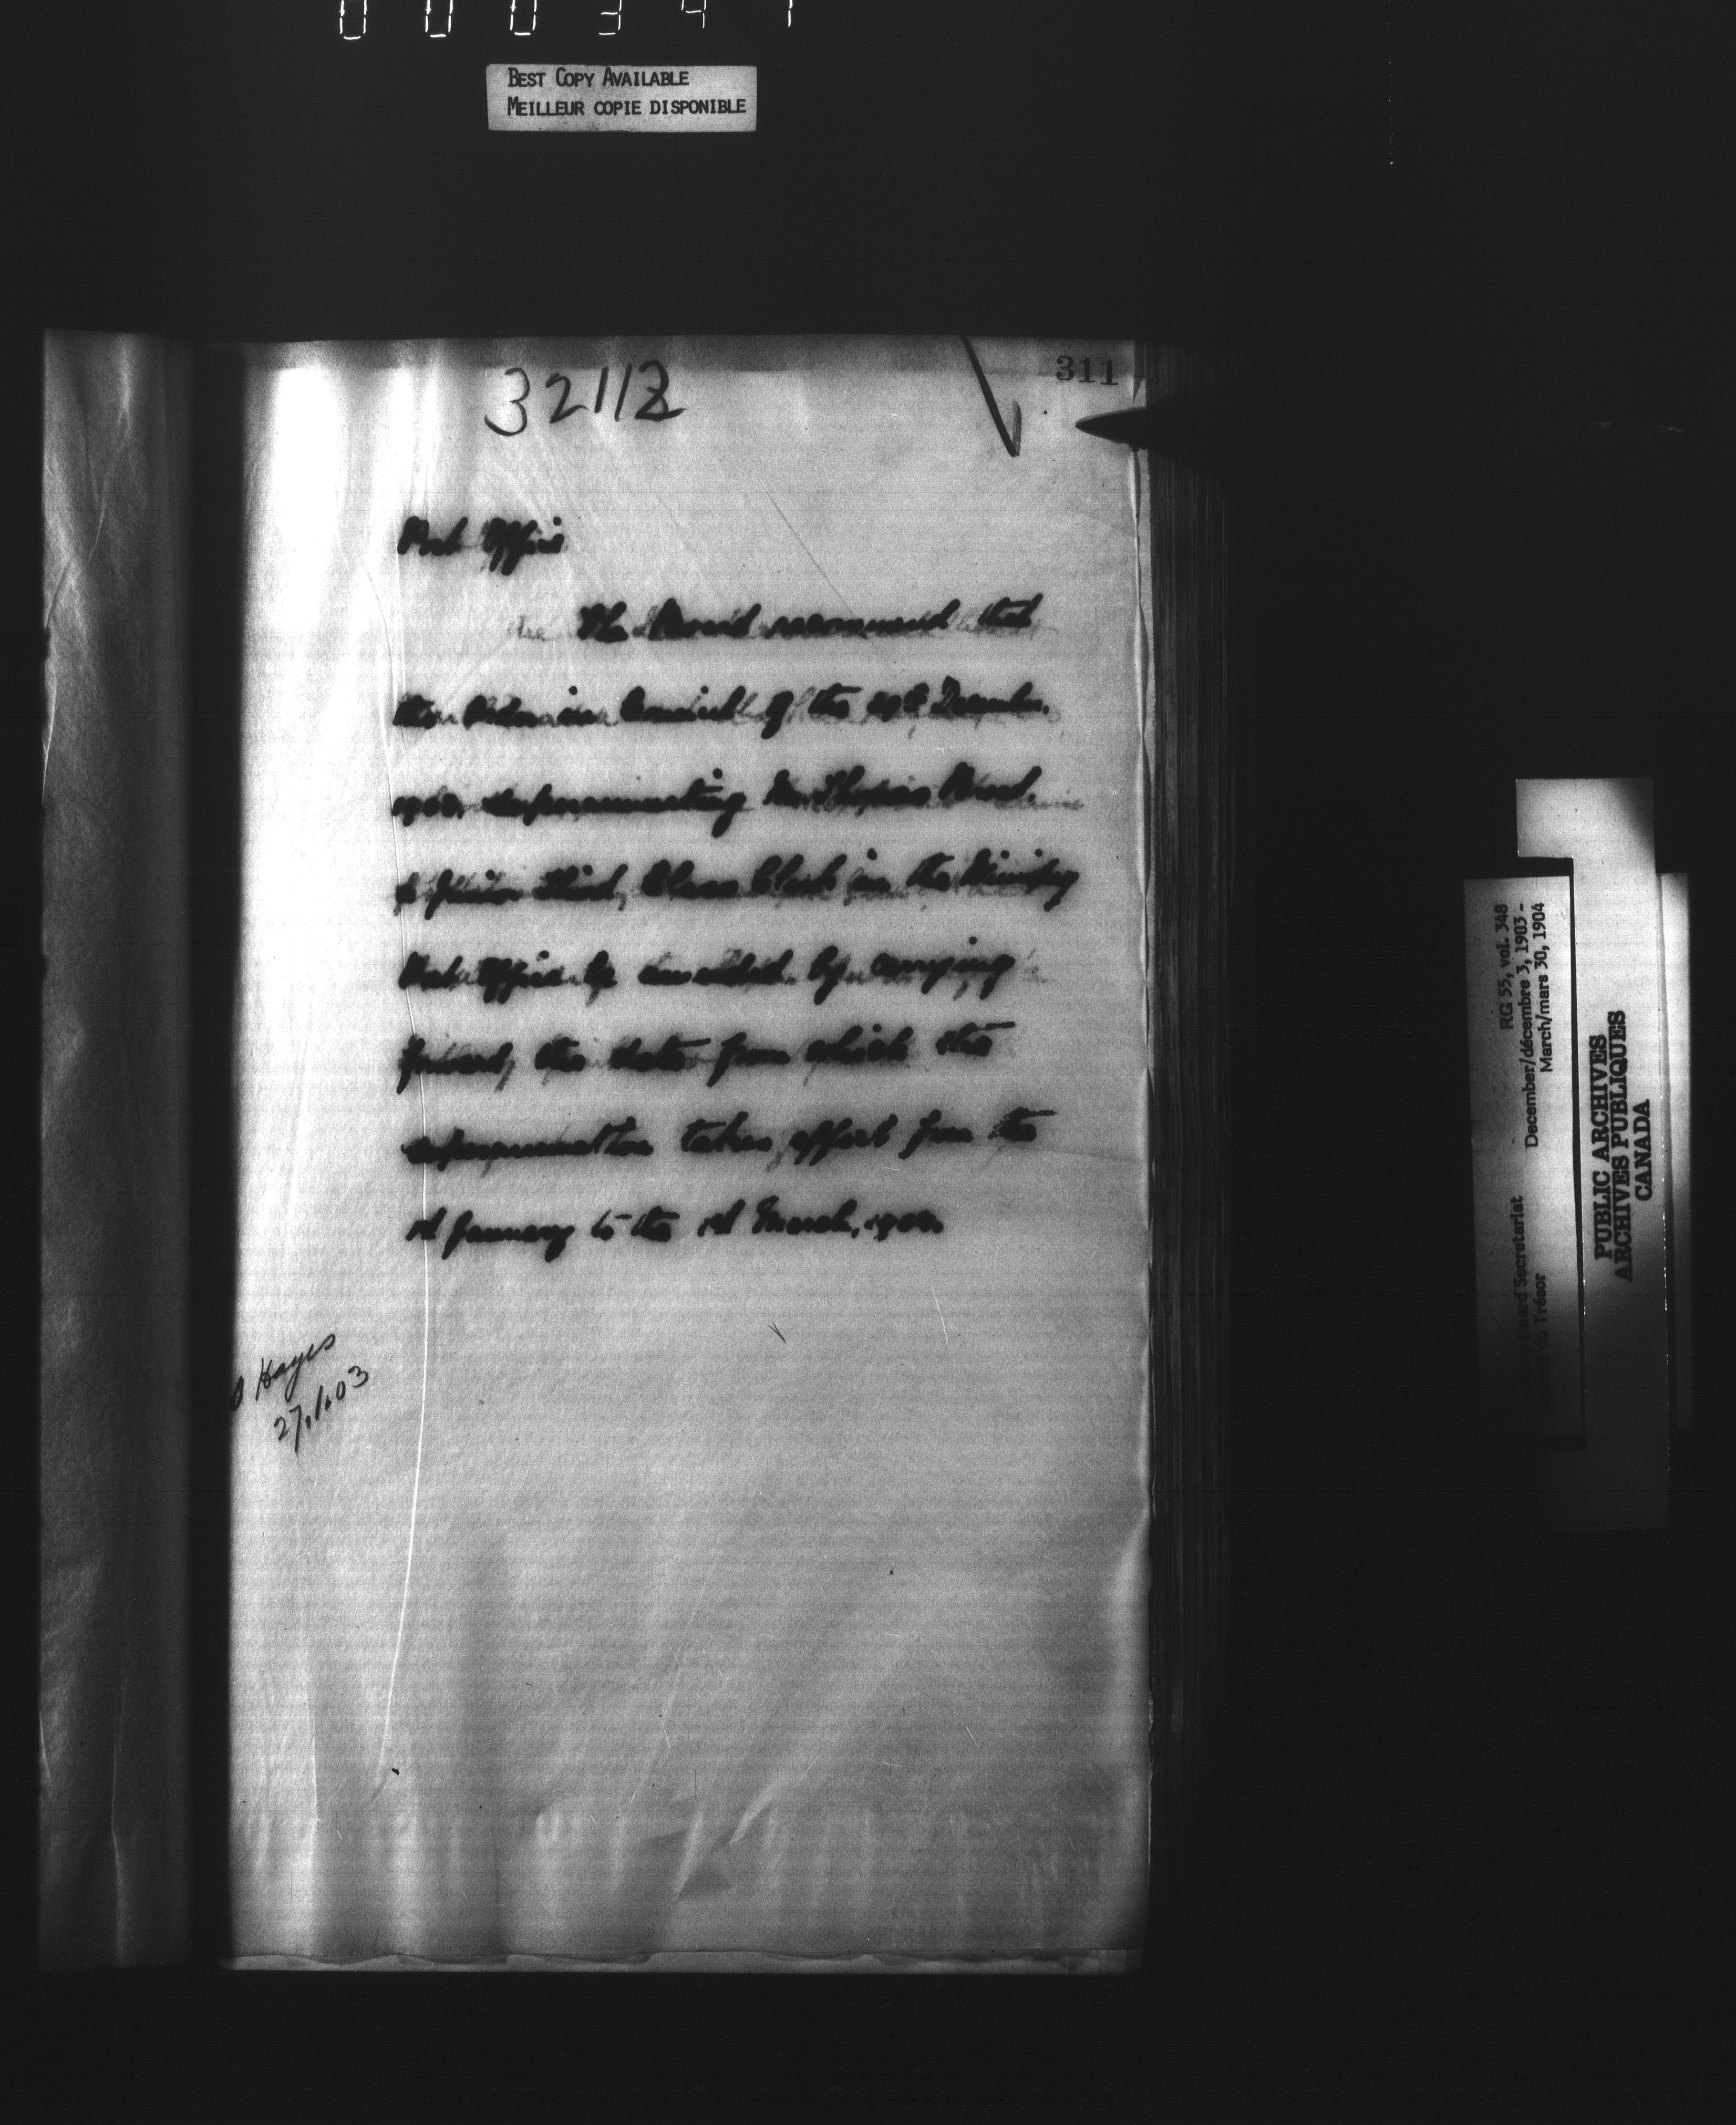 BEST COPY AVAILABLE
MEILLEUR COPIE DISPONIBLE
311
32112
Post Office
The Board recommend that
the Order in Council of the 29th December,
superannuating Mr. Thomas
a Junior Third Class Clerk in the Winnipeg
Post Office be amended by carrying
forward, the date from which the
superannuation takes effect from the
1st January to the 1st March,
Hayes
27.1.03
RG 55, vol. 348
December/décembre 3, 1903 -
March/mars 30, 1904
Board Secretariat
du Trésor
PUBLIC ARCHIVES
ARCHIVES PUBLIQUES
CANADA